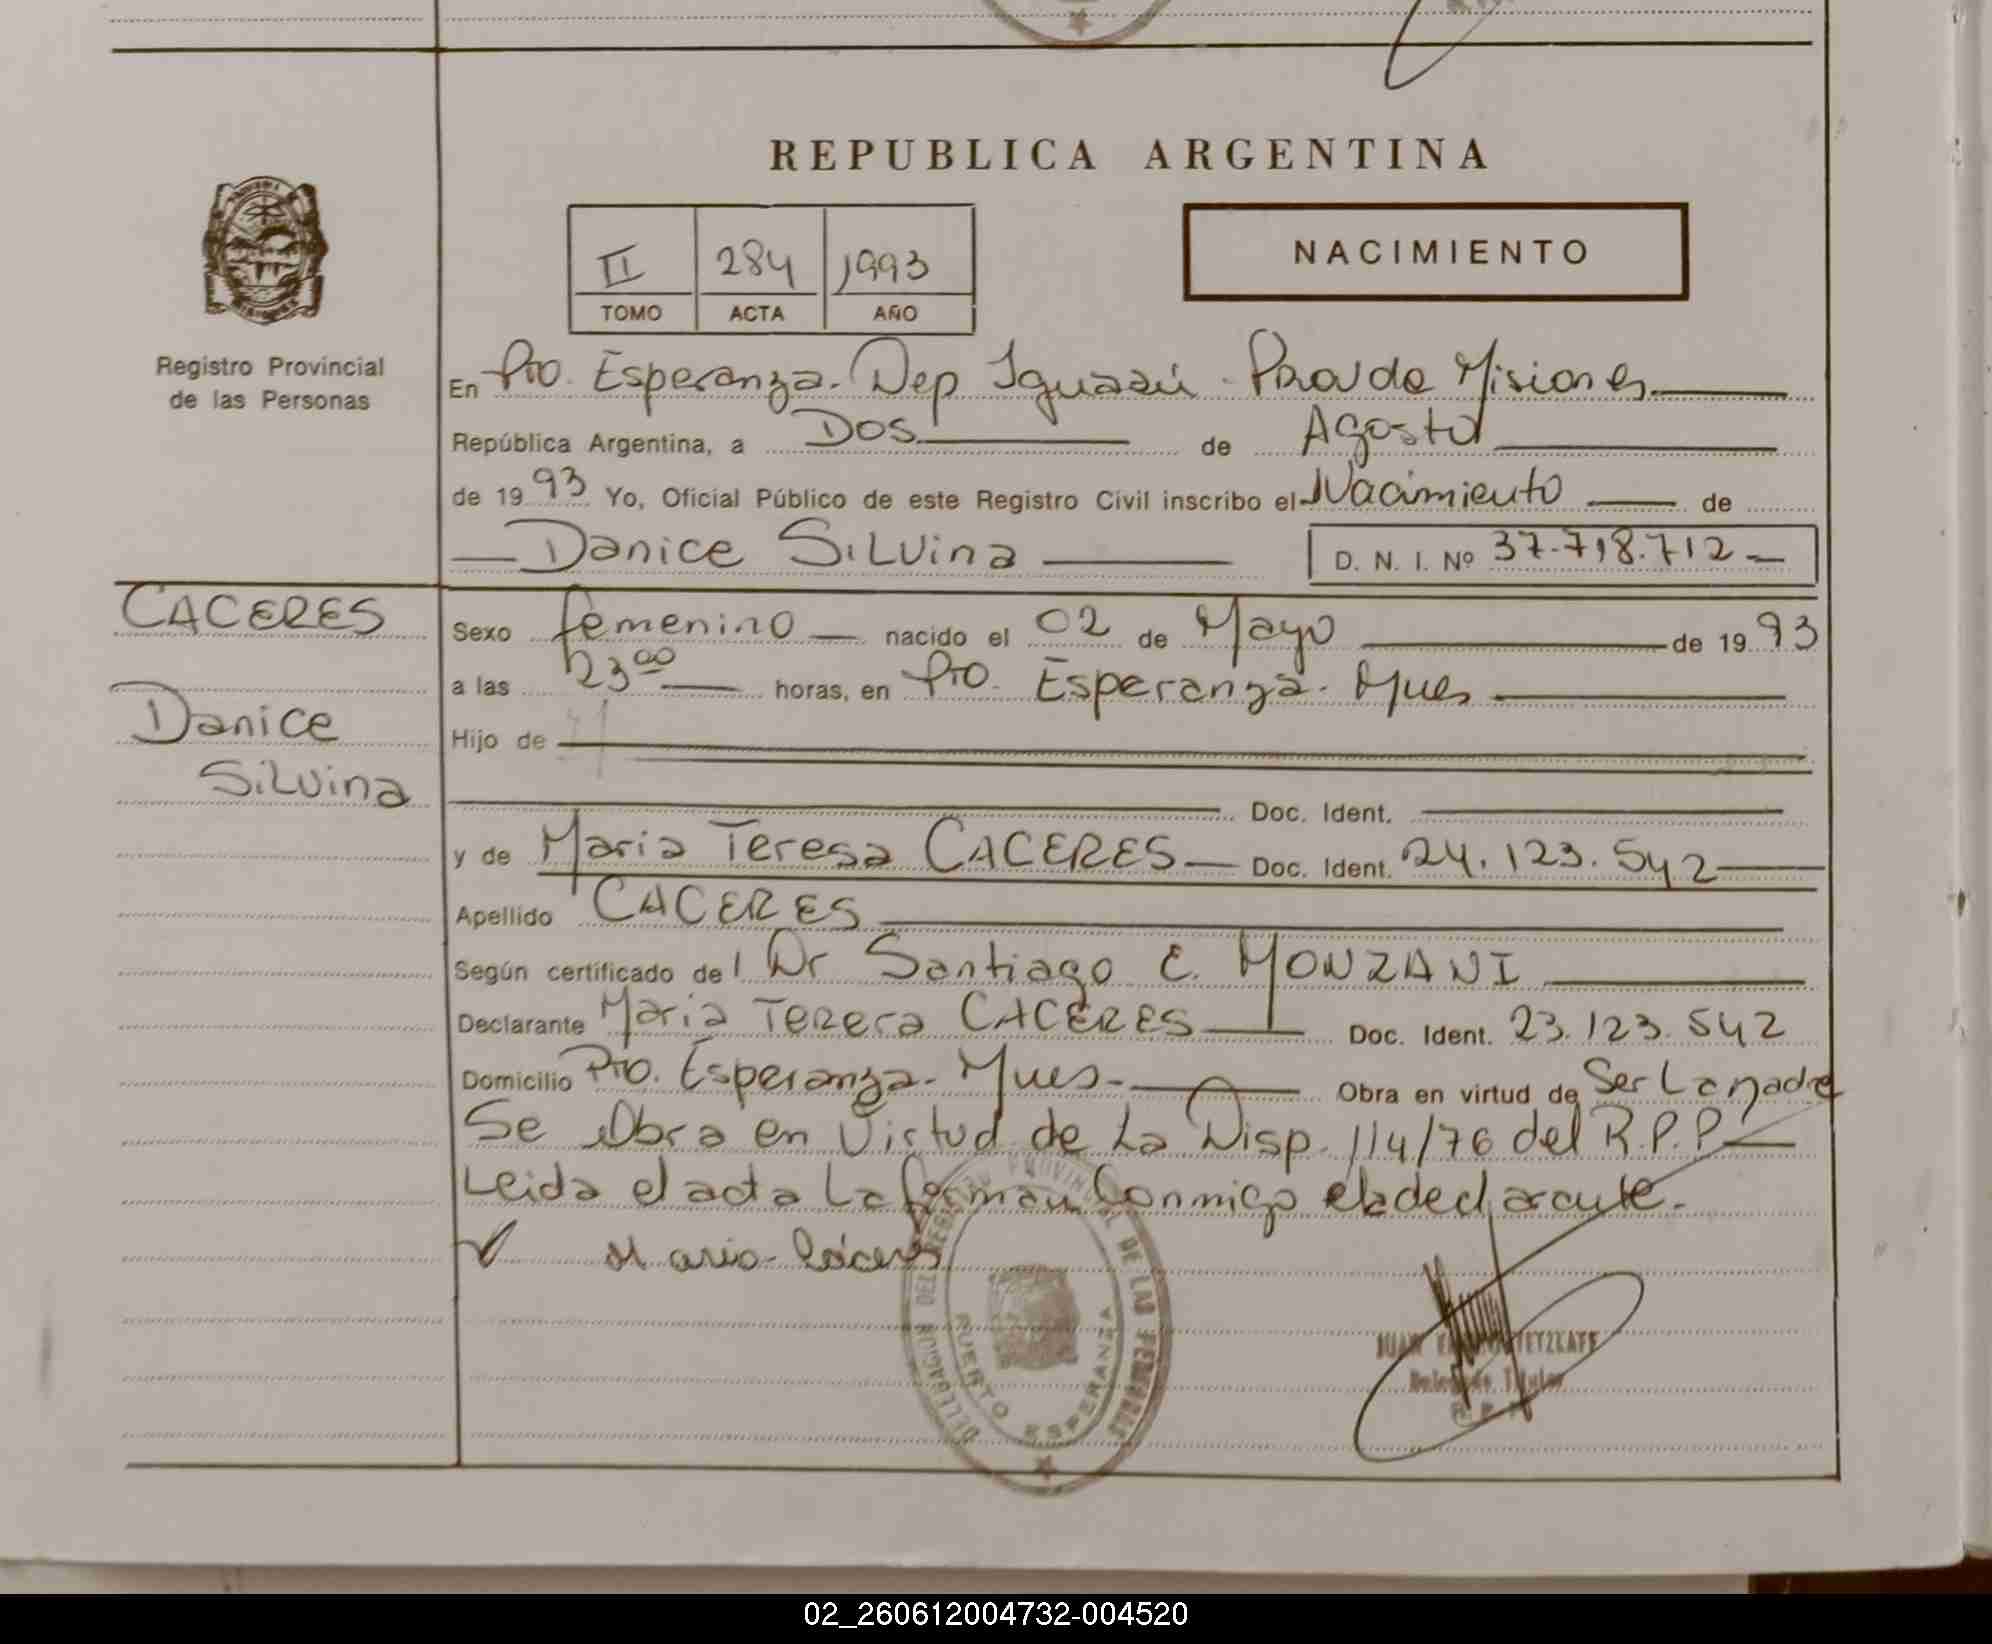 REPUBLICA ARGENTINA
NACIMIENTO
II 284 1993
TOMO ACTA AÑO
Registro Provincial
de las Personas
En Pto. Esperanza. Dep Iguazú - Prov de Misiones
República Argentina, a DOS de Agosto
de 1993 Yo, Oficial Público de este Registro Civil inscribo el Nacimiento de
Danice Silvina D. N. I. Nº 37.718.712
CACERES
Danice
Silvina
Sexo femenino nacido el 02 de Mayo de 1993
a las 23 00 horas, en Pto. Esperanza. Mnes
Hijo de
Doc. Ident.
y de Maria Teresa CACERES Doc. Ident. 24.123.542
Apellido CACERES
Según certificado del Dr Santiago E. MONZANI
Declarante Maria Teresa CACERES Doc. Ident. 23.123.542
Domicilio Pto. Esperanza. Mnes. Obra en virtud de Ser La madre
Se Obra en Virtud de La Disp. 114/76 del R.P.P.
Leida el acta La firman Conmigo la declarante.
Maria Cáceres
DELEGACION DEL REGISTRO PROVINCIAL DE LAS PERSONAS
PUERTO ESPERANZA
JUAN
Delegado Titular
02_260612004732-004520